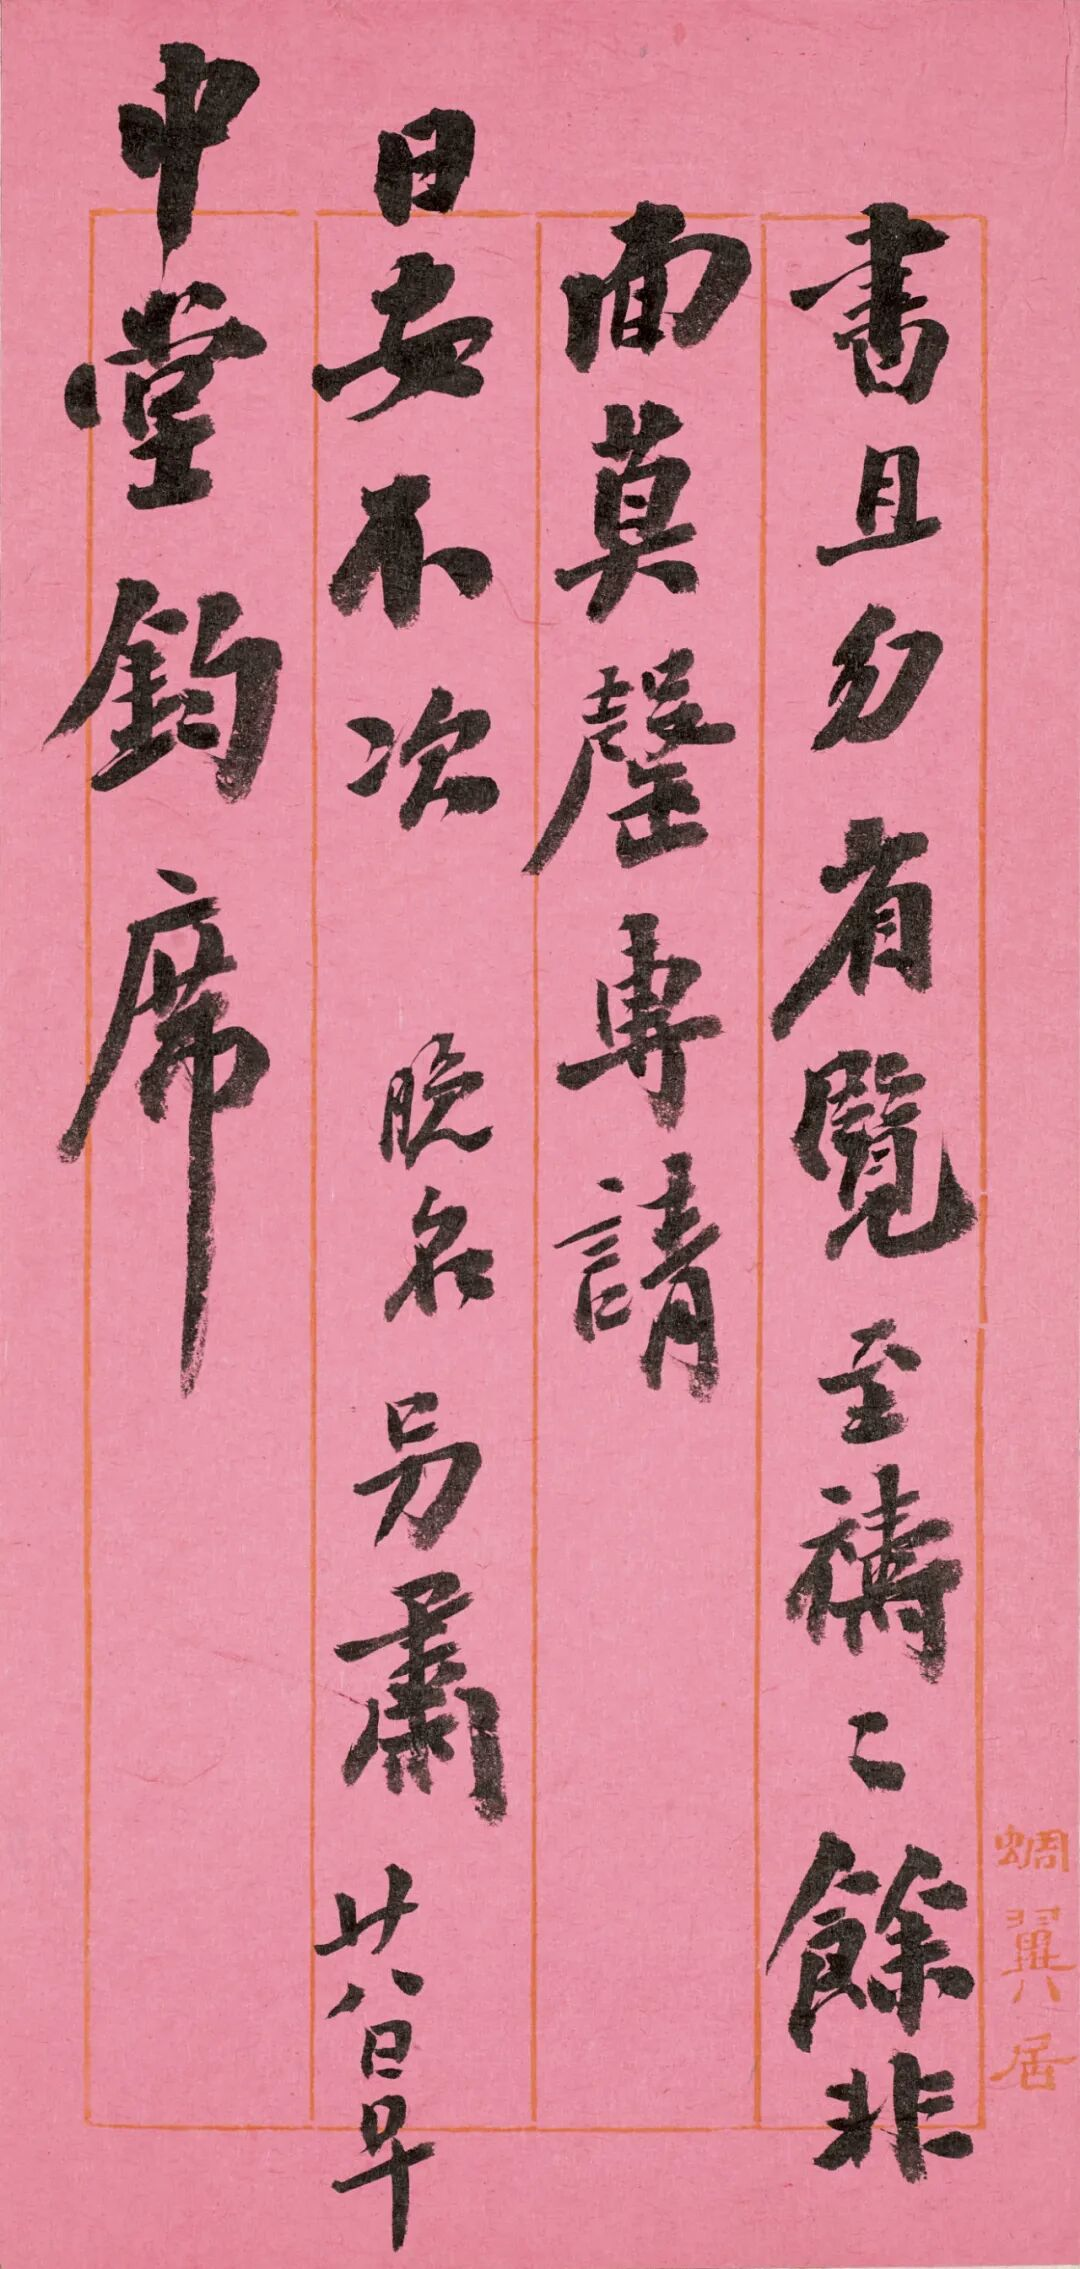 書且勿省覽至禱〻餘非
面莫罄專請
日安不次 晚名另肅 廿八日早
中堂鈞席
蜩翼居